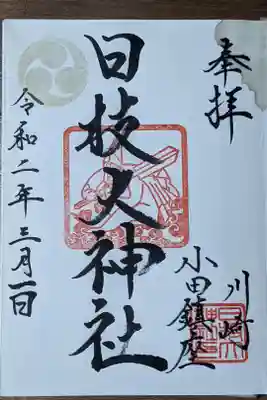 奉拝
川崎
小田鎮座
日枝大神社
令和二年三月一日